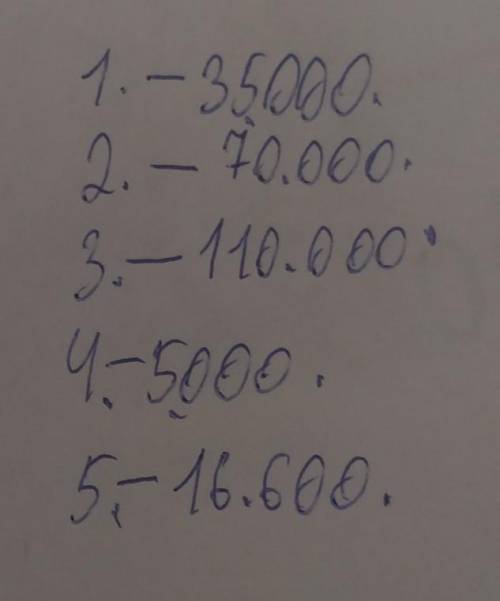 1. - 35.000.
2. - 70.000.
3. - 110.000.
4. - 5.000.
5. - 16.600.